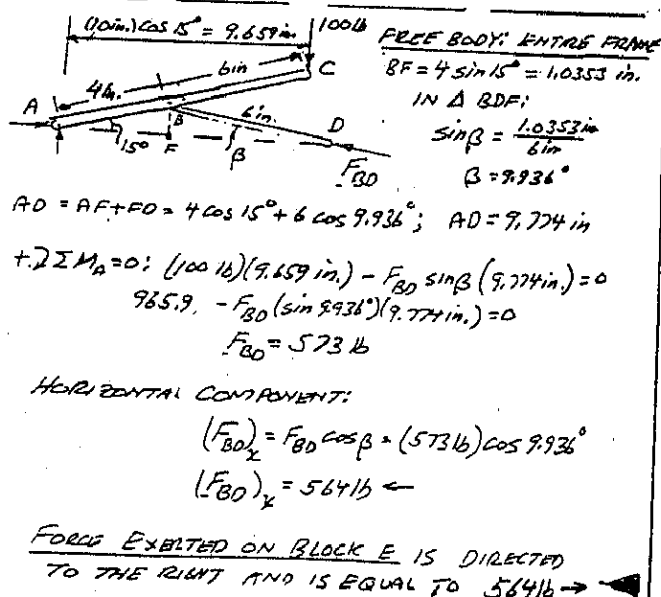 (10in.) cos 15° = 9.659 in.
100 lb
FREE BODY: ENTIRE FRAME
BF = 4 sin 15° = 1.0353 in.
IN Δ BDF:
sin β = 1.0353 in / 6 in
β = 9.936°
6in
C
4in.
A
B
6in.
D
15°
F
β
F_BD
AD = AF + FD = 4 cos 15° + 6 cos 9.936°; AD = 9.774 in
+⤸ΣM_A = 0: (100 lb)(9.659 in.) - F_BD sin β (9.774 in.) = 0
965.9 - F_BD (sin 9.936°)(9.774 in.) = 0
F_BD = 573 lb
HORIZONTAL COMPONENT:
(F_BD)_x = F_BD cos β = (573 lb) cos 9.936°
(F_BD)_x = 564 lb ←
FORCE EXERTED ON BLOCK E IS DIRECTED
TO THE RIGHT AND IS EQUAL TO 564 lb → ◀